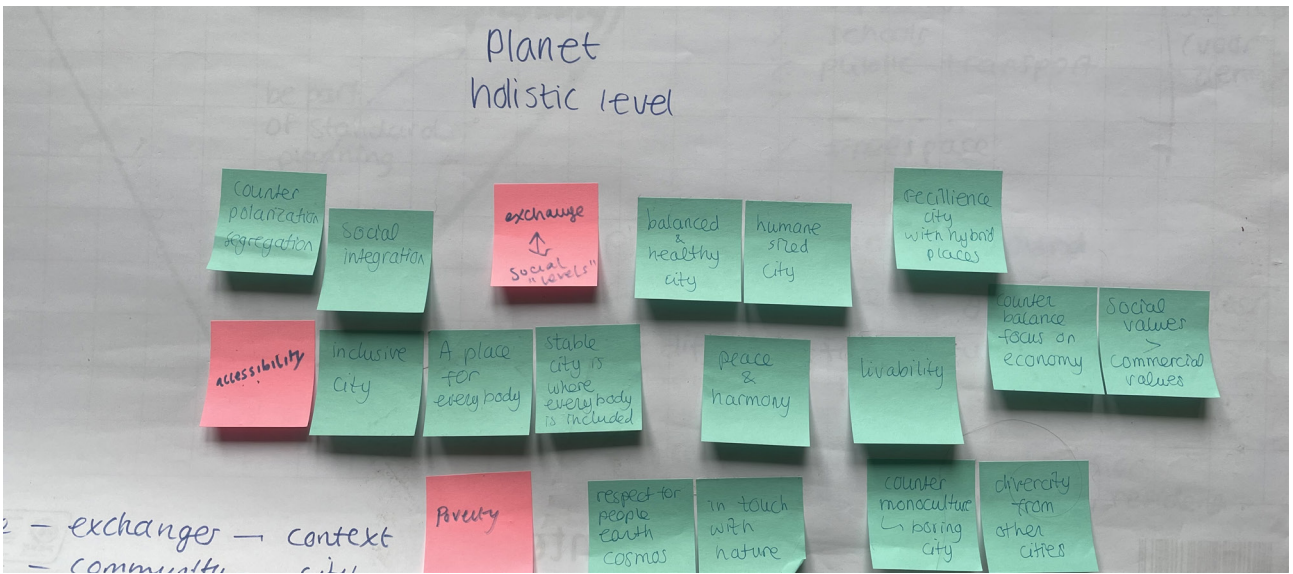 Planet
holistic level
counter
polarization
segregation
Social
integration
exchange
↕
social
"levels"
balanced
&
healthy
city
humane
sized
city
recillience
city
with hybrid
places
counter
balance
focus on
economy
Social
values
>
commercial
values
accessibility
inclusive
city
A place
for
everybody
stable
city is
where
everybody
is included
peace
&
harmony
livability
Poverty
respect for
people
earth
cosmos
in touch
with
nature
counter
monoculture
↳ boring
city
divercity
from
other
cities
– exchanger – context
– community